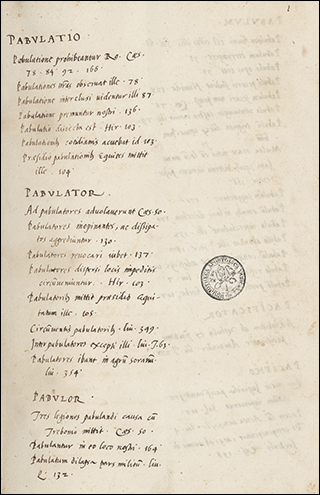 PABULATIO
Pabulatione prohibeantur Ro. Cæs.
78. 84. 92. 166.
Pabulationes nr̃as observat ille. 78
Pabulatione interclusi uidentur illi 87
Pabulatione premuntur nostri. 136.
Pabulatio. Hir. 103
Pabulationib. cotidianis 103.
Præsidio pabulationib. Equites mittit
ille. 104
PABULATOR.
Ad pabulatores aduolauerunt Cæs. 50.
Pabulatores inopinantes, ac dissipa-
tos aggrediuntur. 130.
Pabulatores reuocari iubet. 137.
Pabulatores dispersi locis impeditis
circũueniuntur. Hir. 103
Pabulatorib. mittit præsidio equi-
tatum ille. 105.
Circũuentis pabulatorib. liu. 349.
Inter pabulatores excepti illi. liu. 763.
Pabulatores ibant in agrũ
liu. 354
PABULOR.
Tres legiones pabulandi causa cũ
Trebonio mittit. Cæs. 50.
Pabulantur in eo loco nostri. 164
Pabulatum dilapsa pars militũ. liu.
132.